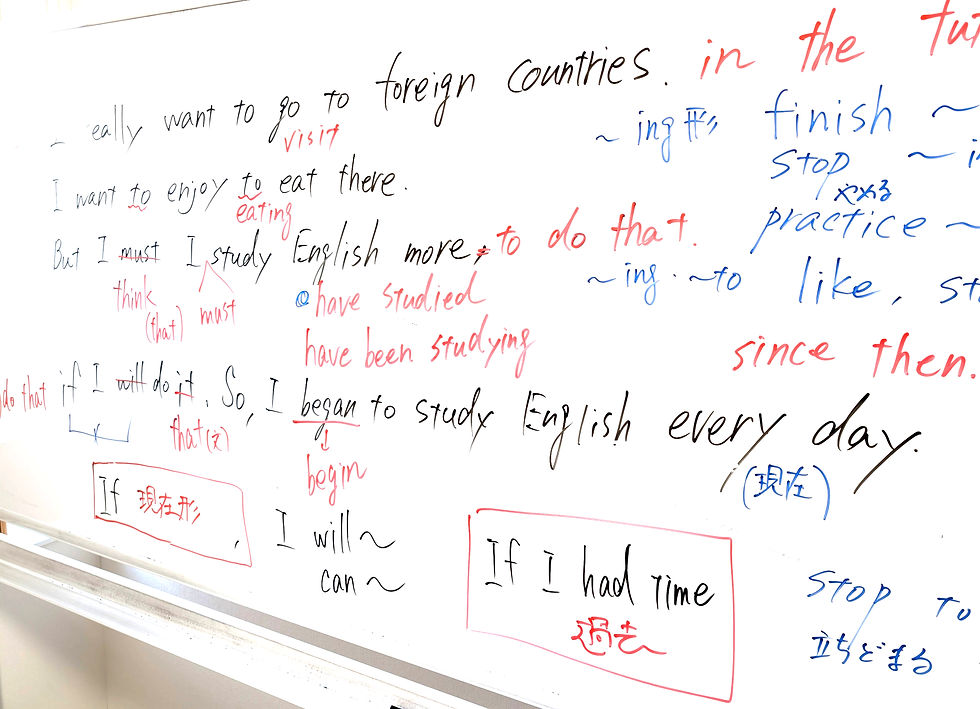 really want to go to foreign countries. in the
visit
~ ing形 finish ~
stop ~
やめる
I want to enjoy to eat there.
eating
practice ~
But I must I study English more, to do that.
think
(that)
must
~ing・~to like,
@have studied
have been studying
since then.
do that if I will do it. So, I began to study English every day.
that(文)
↓
begin
(現在)
If 現在形 ,
I will ~
can ~
If I had time
過去
stop to
立ちどまる